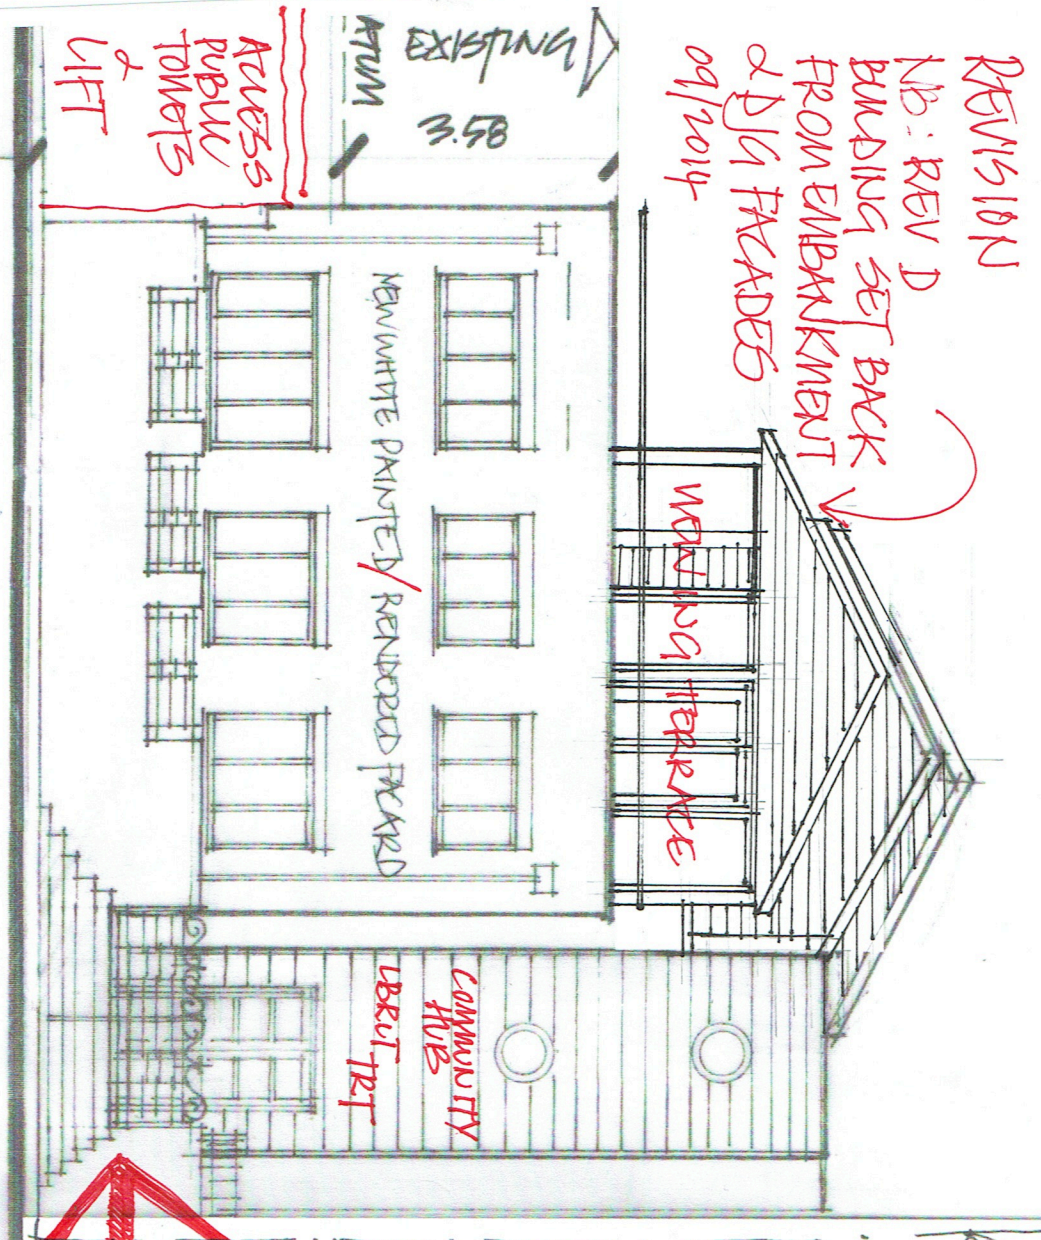 REVISION
NB: REV D
BUILDING SET BACK
FROM EMBANKMENT
& D/G FACADES
09/2014
EXISTING
3.58
ACCESS
PUBLIC
TOILETS
&
LIFT
NEW WHITE PAINTED/RENDERED FACARD
TERRACE
COMMUNITY
HUB
TRT